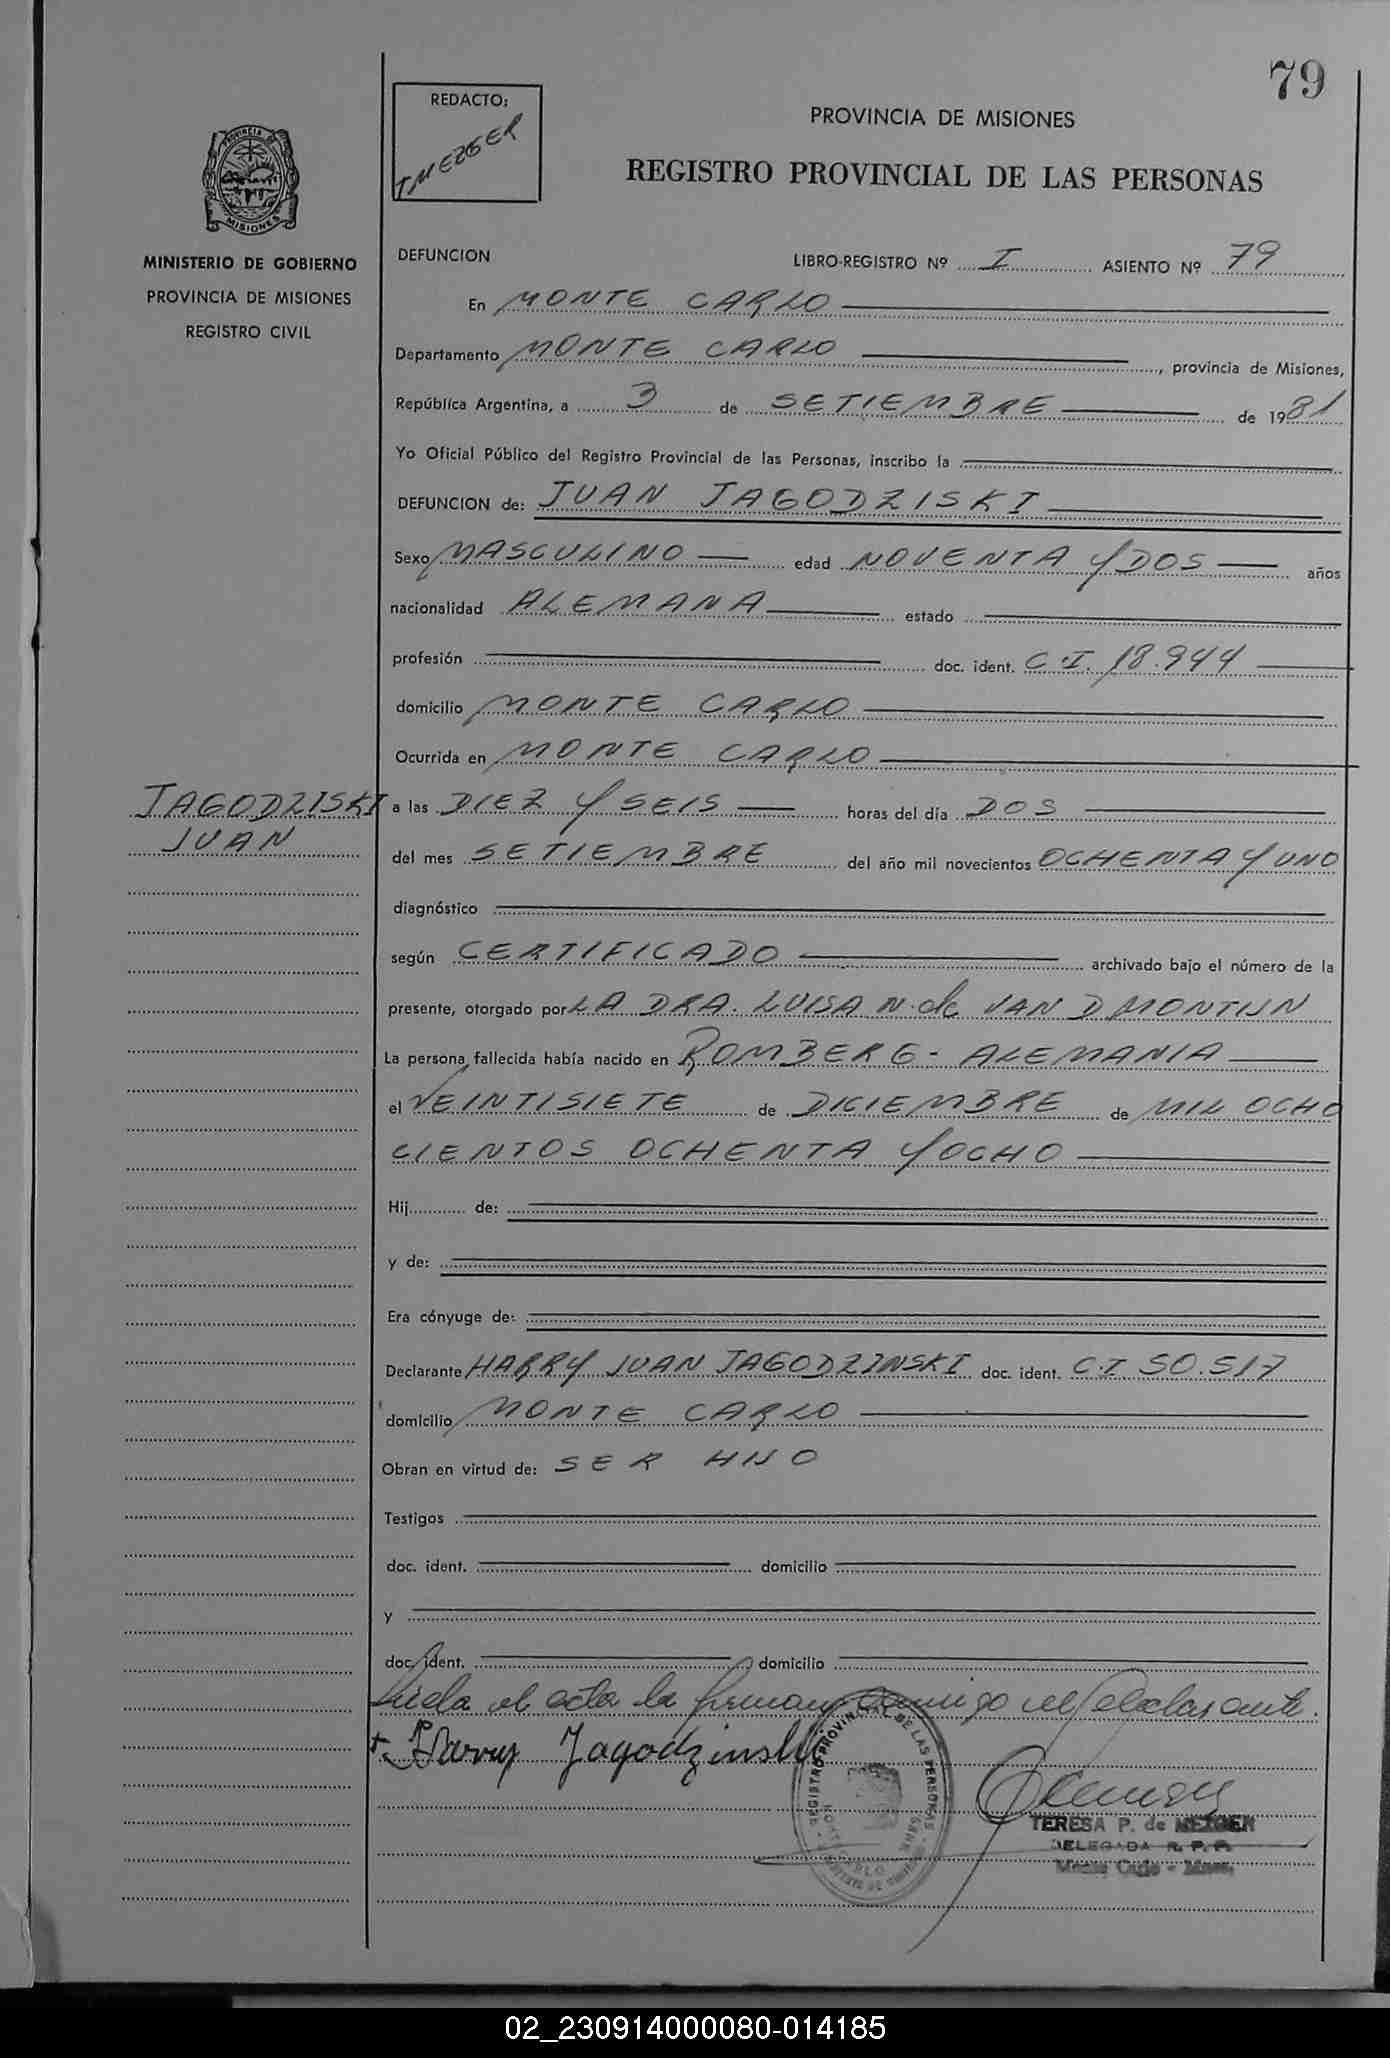 79
REDACTO:
T MEZGER
PROVINCIA DE MISIONES
REGISTRO PROVINCIAL DE LAS PERSONAS
PROVINCIA DE
MISIONES
MINISTERIO DE GOBIERNO
PROVINCIA DE MISIONES
REGISTRO CIVIL
DEFUNCION LIBRO-REGISTRO Nº I ASIENTO Nº 79
En MONTE CARLO
Departamento MONTE CARLO, provincia de Misiones,
República Argentina, a 3 de SETIEMBRE de 1981
Yo Oficial Público del Registro Provincial de las Personas, inscribo la
DEFUNCION de: JUAN JAGODZISKI
Sexo MASCULINO edad NOVENTA Y DOS años
nacionalidad ALEMANA estado
profesión doc. ident. C.I. 18.944
domicilio MONTE CARLO
Ocurrida en MONTE CARLO
JAGODZISKI
JUAN
a las DIEZ Y SEIS horas del día DOS
del mes SETIEMBRE del año mil novecientos OCHENTA Y UNO
diagnóstico
según CERTIFICADO archivado bajo el número de la
presente, otorgado por LA DRA. LUISA N. de VAN D MONTIJN
La persona fallecida había nacido en ROMBERG - ALEMANIA
el VEINTISIETE de DICIEMBRE de MIL OCHO
CIENTOS OCHENTA Y OCHO
Hij de:
y de:
Era cónyuge de:
Declarante HARRY JUAN JAGODZINSKI doc. ident. C.I 50.517
domicilio MONTE CARLO
Obran en virtud de: SER HIJO
Testigos
doc. ident. domicilio
y
doc. ident. domicilio
Leida el acta la firman conmigo el declarante.
Harry Jagodzinski
REGISTRO PROVINCIAL DE LAS PERSONAS
MONTE CARLO
TERESA P. de MEZGER
DELEGADA R. P. P.
Monte Carlo - Mnes.
02_230914000080-014185